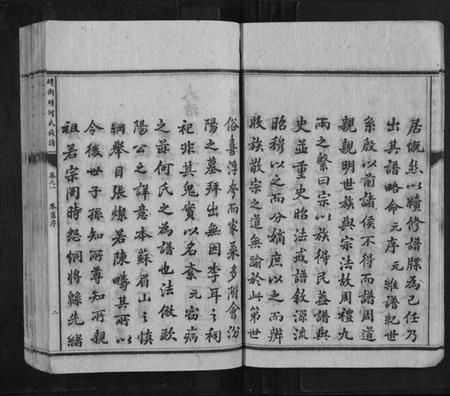 居慨然以續修譜牒為己任乃
出其譜略命元序元維譜紀世
系殷以前諸侯不得而譜周道
親親明世族與宗法故周禮九
兩之繫曰宗以族得民蓋譜與
史並重史昭法戒譜敘源流
昭穆以之而分嫡庶以之而辨
收族敬宗之道無踰於此第世
俗喜浮夸而家乘多附會汾
陽之墓拜出無因李耳之祠
祀非其鬼實以名
之
陽公之詳意本蘇眉山之慎
綱舉目張燦若陳疇其所以
令後世子孫知所尊知所親
祖若宗罔時怨恫將緜先緒
何氏族譜
卷之一
序
二